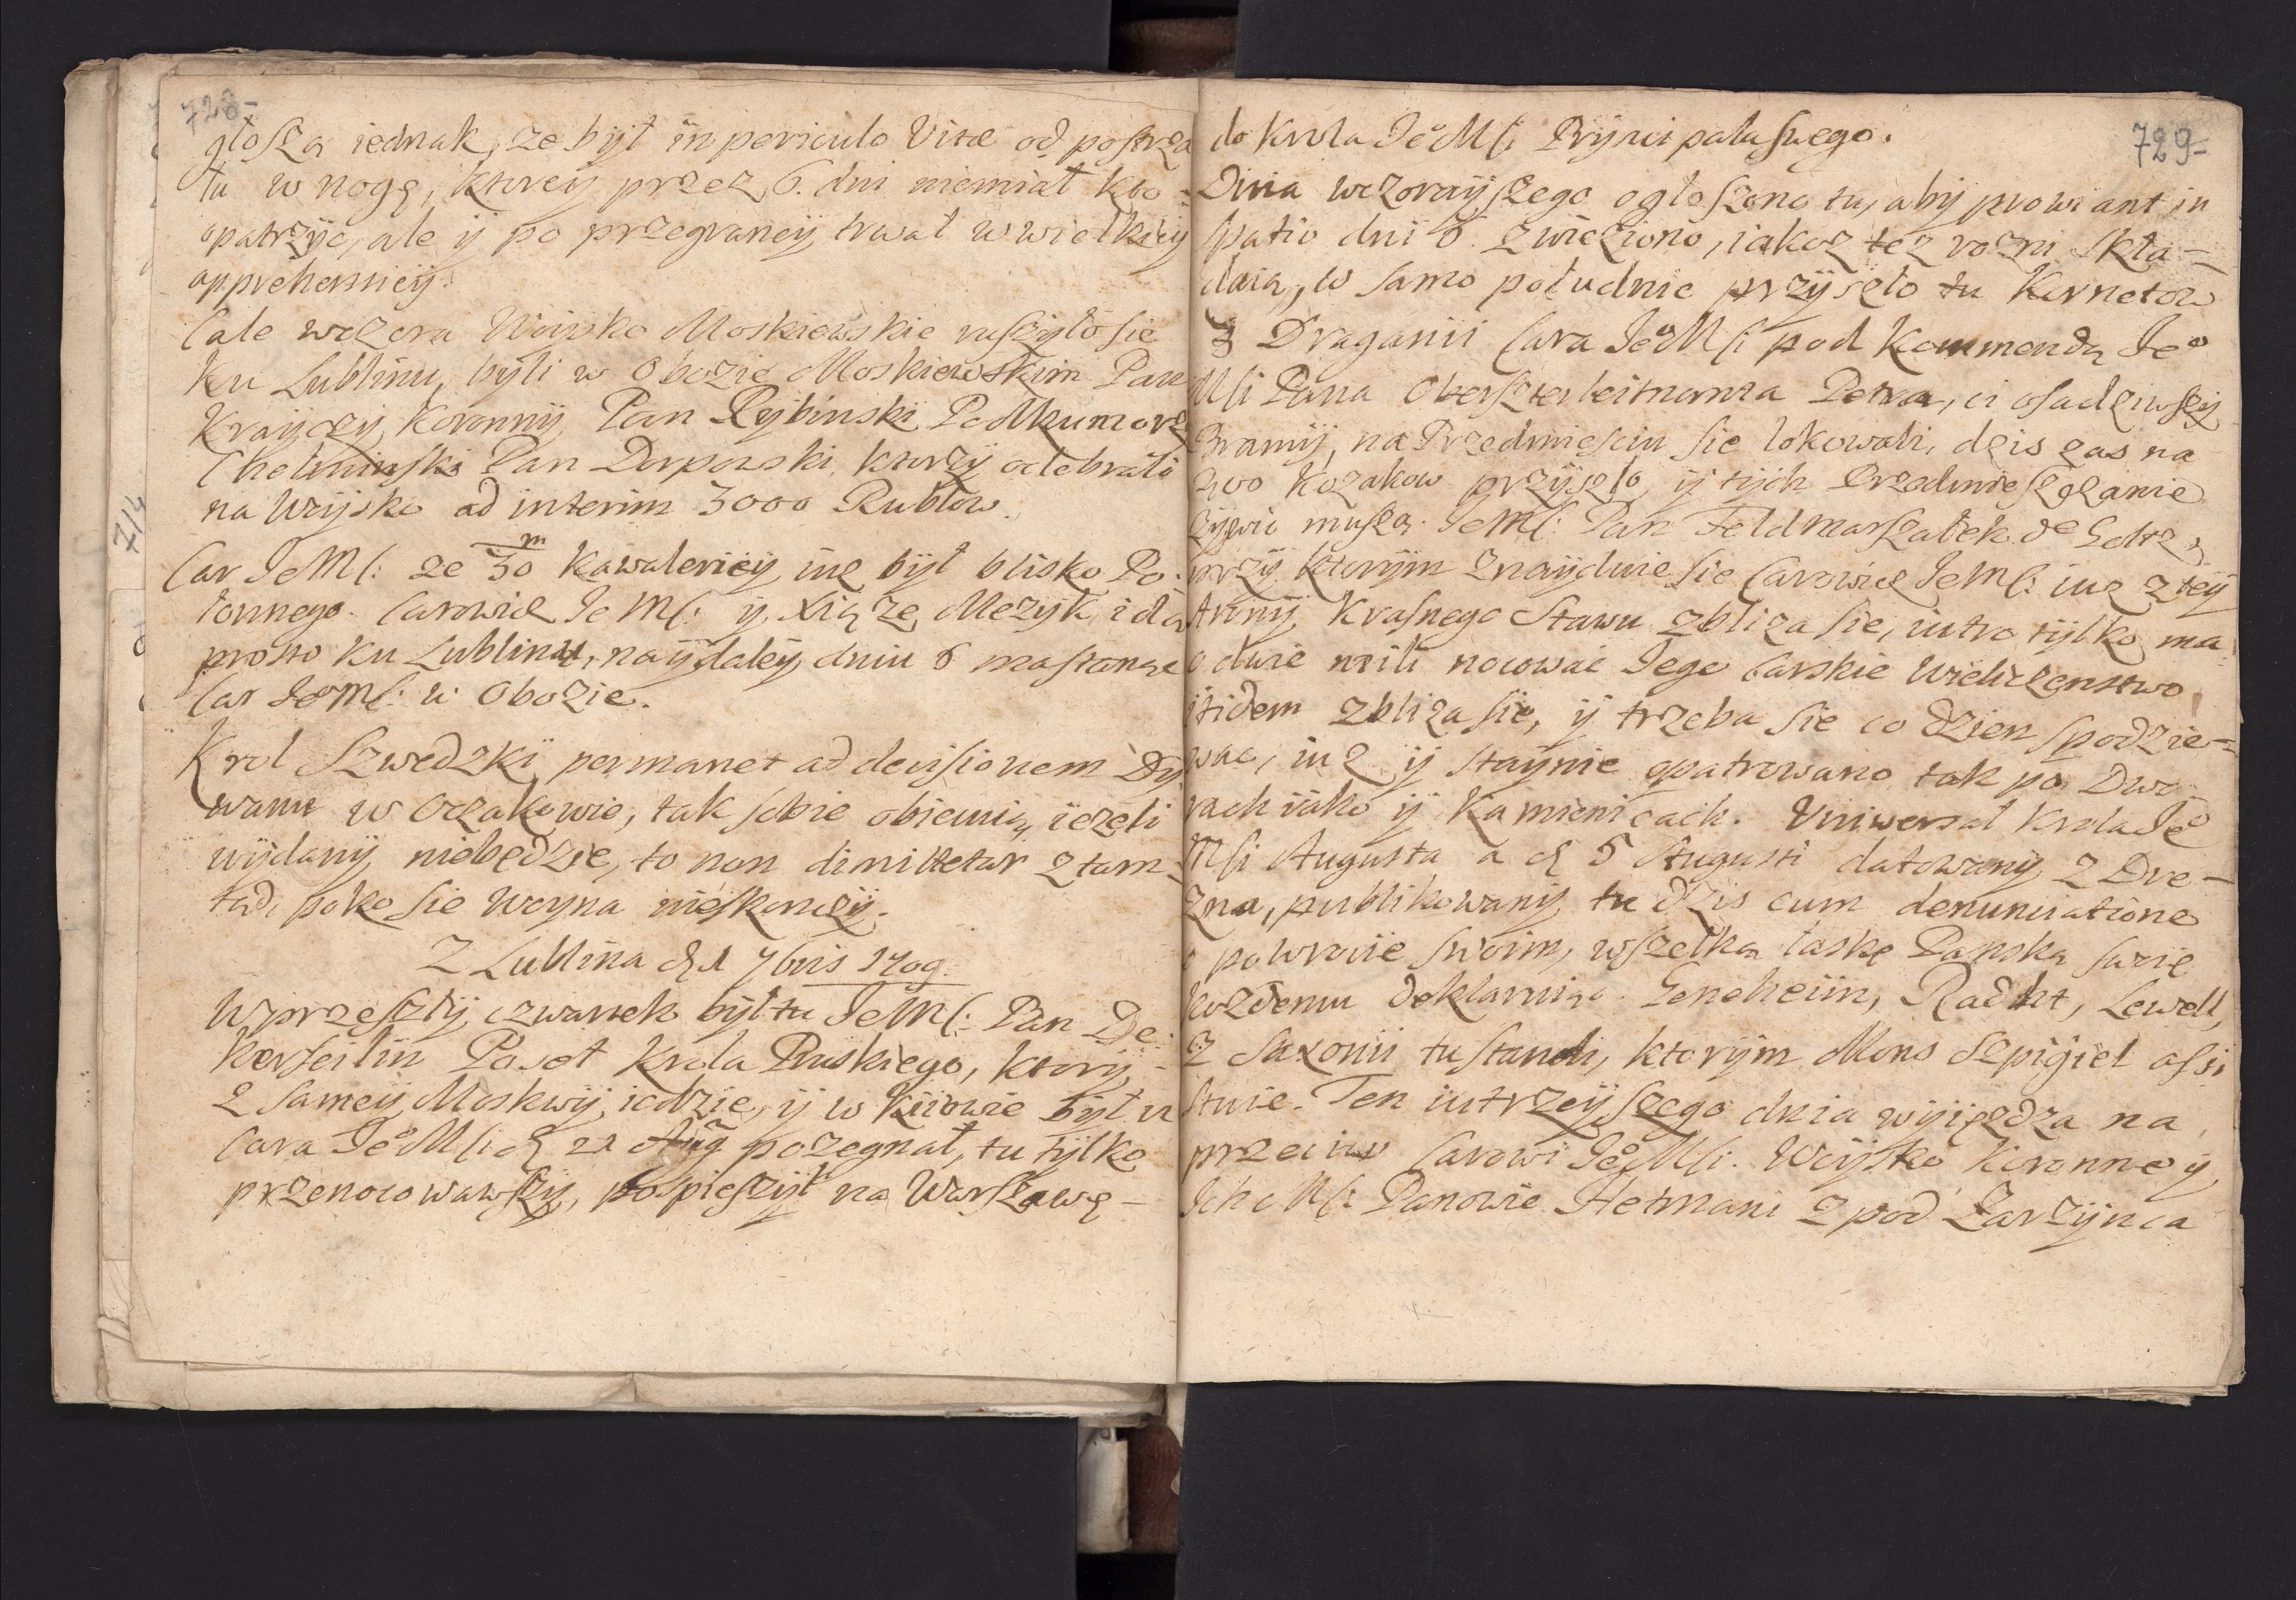 728-
głoszą iednak, ze był in periculo Vitæ od postrza
łu w nogę, ktorey przez 6. dni niemiał kto
opatrzyć, ale y po przegraney trwał w wielkiey
apprehensiey.
Cale wczora Woisko Moskiewskie ruszyło sie
ku Lublinu, byli w Obozie Moskiewskim Pan
Krayczy Koronny Pan Rybinski Podkumorz
Chełminski Pan Dorpowski, ktorzy odebrali
na Woysko ad interim 3000 Rublow.
Car JeMſ: ze 30 m Kawaleriey iuz był blisko Po-
łonnego. Carowic JeMſ: y Xiąze Mezyk idą
prosto ku Lublinu, naydaley dniu 6 ma stanąc
Car JeoMſ: w Obozie.
Krol Szwedzki permanet ad decisionem Dy
wanu w Oczakowie, tak sobie obiecuią, iezeli
wydany niebędzie, to non dimittetur ztam-
tąd, poko sie Woyna nieskonczy.
Z Lublina d 1 7bris 1709.
W przeszły czwartek był tu JeMſ: Pan De
Kerseilin Poseł Krola Pruskiego, ktory
z samey Moskwy iedzie, y w Kiiowie był u
Cara JeoMſci d 21 Aug pozegnał, tu tylko
przenocowawszy, pospieszył na Warszawę-
714
729-
do Krola JeoMſci Pryncipała swego.
Dnia wczorayszego ogłoszono tu, aby prowiant in
spatio dni 6 zwieziono, iakoz tez rozni skła-
daią, w samo południe przyszło tu Kornetow
3 Draganii Cara JeoMſci pod Kommendą Jeo
Mſci Pana Obersztleitnanta Petra, ci osadziwszy
Bramy, na Przedmiesciu sie lokowali, dzis zas na
200 Kozakow przyszło, y tych Przedmieszczanie
zywic muszą. JeMſ: Pan Feldmarszałek de Goltz
przy ktorym znayduie sie Carowic JeMſ: iuz z tey
strony Krasnego Stawu zbliza sie, iutro tylko ma
o dwie mili nocowac Jego Carskie Wieliczenstwo
itidem zbliza sie, y trzeba sie co dzien spodzie-
wac, iuz y staynie opatrowano tak po Dwo-
rach iako y Kamienicach. Uniwersał Krola Jeo
Mſci Augusta a d 5 Augusti datowany z Dre-
zna, publikowany tu dzis cum denunciatione
o powrocie swoim, wszelką łaskę Panską swoię
kozdemu deklaruiąc. Goneheim, Radkt, Lewell,
z Saxonii tu stanęli, ktorym Mons Szpigiel assi
stuie. Ten iutrzeyszego dnia wyiezdza na
przeciw Carowi JeoMſci. Woysko Koronne y
Ich Mſ: Panowie Hetmani z pod Zarzynca